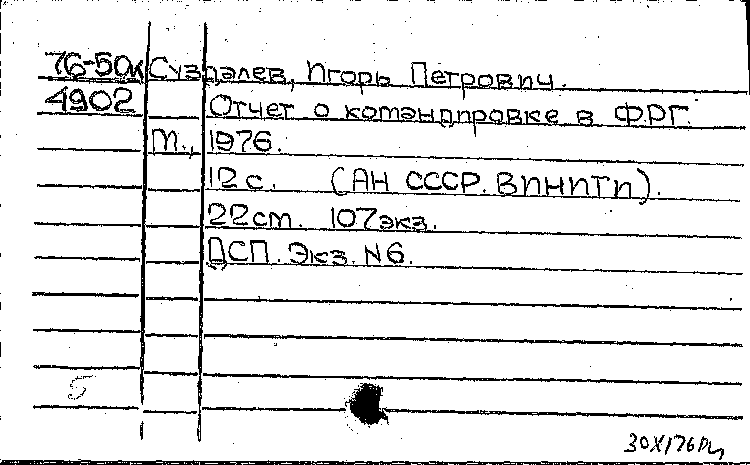 76-50к Суздалев, Игорь Петрович.
4902 Отчет о командировке в ФРГ.
М., 1976.
12 с. (АН СССР. ВИНИТИ).
22 см. 107 экз.
ДСП. Экз. N6.
5
30 X 176